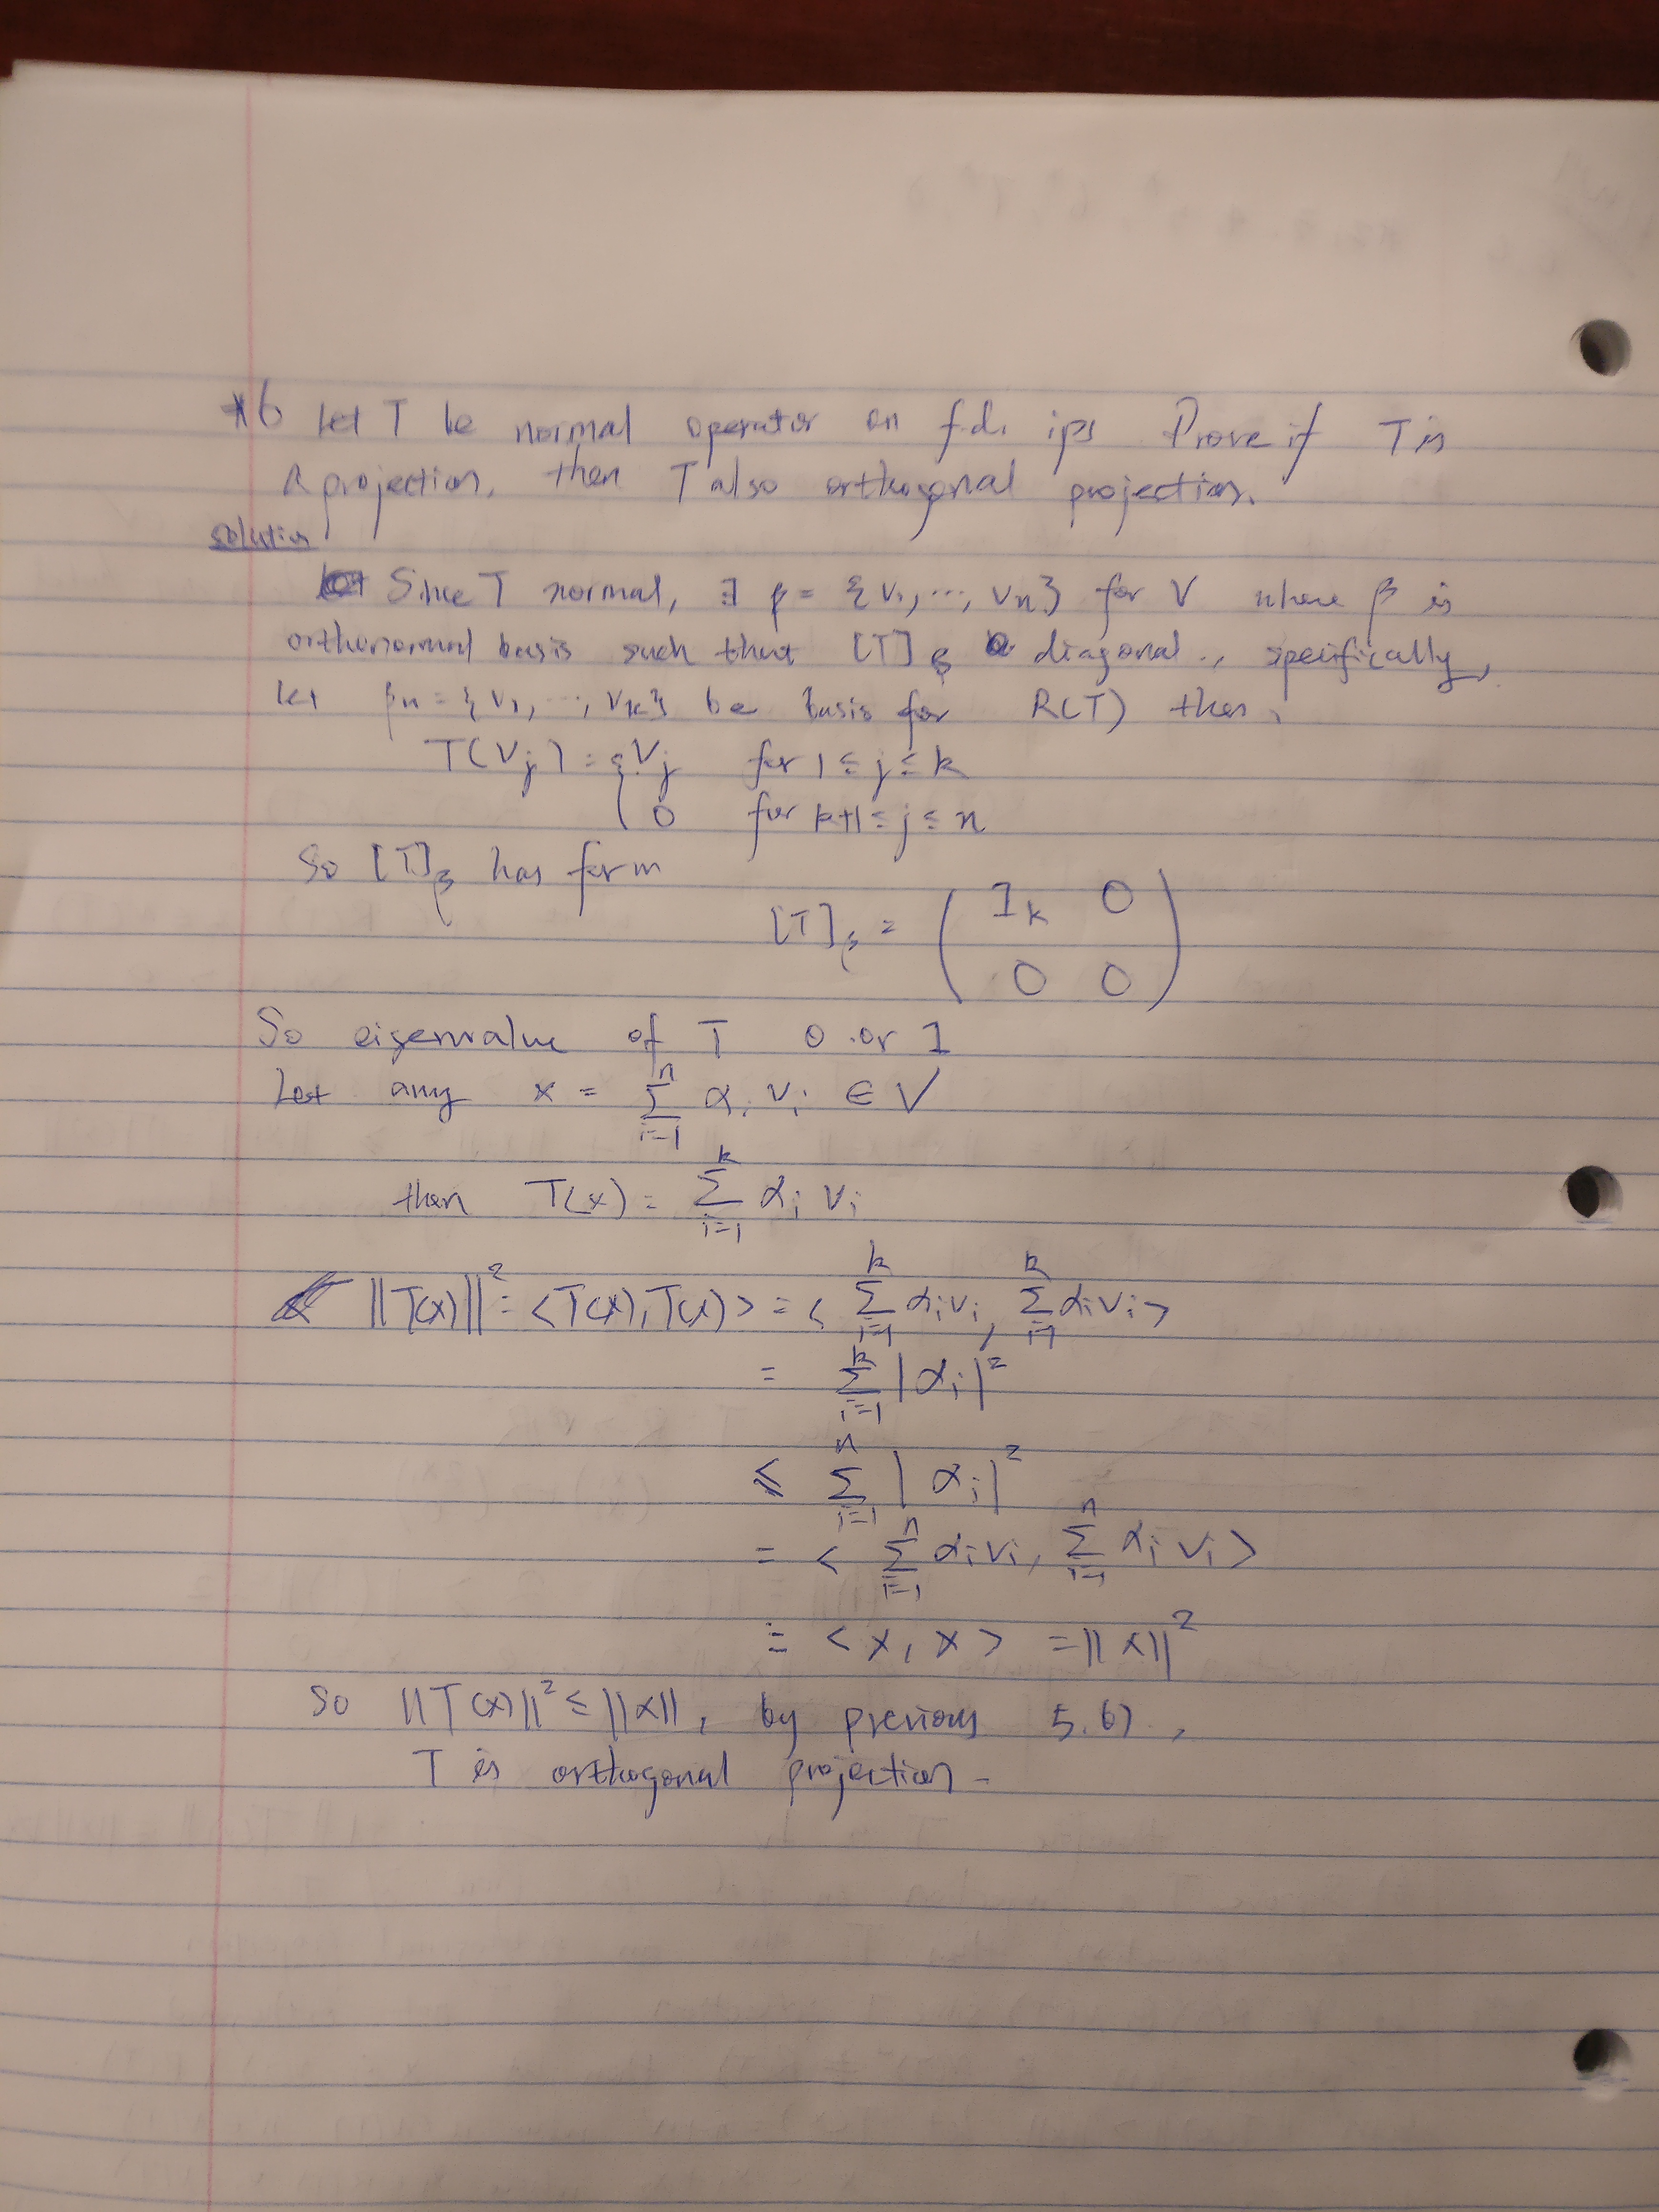 *6 Let T be normal operator on f.d. ips Prove if T is
a projection, then T also orthogonal projection.
solution
Since T normal, ∃ β = {v₁, ..., vₙ} for V where β is
orthonormal basis such that [T]β diagonal., specifically,
let βₖ = {v₁, ..., vₖ} be basis for R(T) then,
T(vⱼ) = { vⱼ for 1 ≤ j ≤ k
0 for k+1 ≤ j ≤ n
So [T]β has form
[T]β = ( Iₖ 0
0 0 )
So eigenvalue of T 0 or 1
Let any x = Σᵢ₌₁ⁿ αᵢ vᵢ ∈ V
then T(x) = Σᵢ₌₁ᵏ αᵢ vᵢ
||T(x)||² = <T(x), T(x)> = < Σᵢ₌₁ᵏ αᵢvᵢ, Σᵢ₌₁ᵏ αᵢvᵢ >
= Σᵢ₌₁ᵏ |αᵢ|²
≤ Σᵢ₌₁ⁿ |αᵢ|²
= < Σᵢ₌₁ⁿ αᵢvᵢ, Σᵢ₌₁ⁿ αᵢ vᵢ >
= < x, x > = ||x||²
So ||T(x)||² ≤ ||x||, by previous 5.b),
T is orthogonal projection.